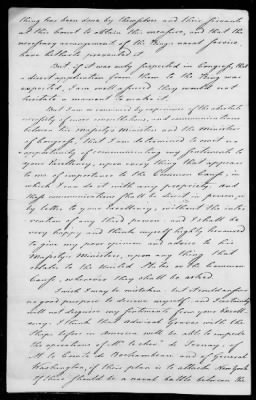 thing has been done by themselves and their servants
at this Court to obtain this measure, and that the
necessary arrangements of the King's naval service,
have hitherto prevented it.
But if it was only suspected in Congress, that
a direct application from them to the King was
expected, I am well assured they would not
hesitate a moment to make it.
But I am so convinced by experience of the absolute
necessity of more consultations, and communications
between his Majesty's Ministers and the Ministers
of Congress, that I am determined to omit no
opportunity of communicating my sentiments to
your Excellency, upon every thing that appears
to me of importance to the Common Cause, in
which I can do it with any propriety. and
those communications shall be direct in person or
by letter to your Excellency, without the inter-
vention of any third person. and I shall be
very happy and think myself highly honoured
to give my poor opinion and advice to his
Majesty's Ministers, upon any thing that
relates to the United States or the Common
Cause, whenever they shall be asked.
I wish I may be mistaken. but it would answer
no good purpose to deceive myself: and I certainly
will not disguise my sentiments from your Excell-
ency. I think that Admiral Graves with the
Ships before in America will be able to impede
the operations of Mr. le Cher. de Ternay, of
M. le Comte de Rochambeau and of General
Washington, if their plan is to attack New York.
If there should be a naval battle between the